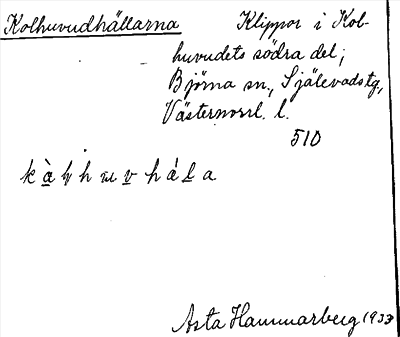 Kolhuvudhällarna
Klippor i Kol-
huvudets södra del;
Björna sn., Själevadstg,
Västernorrl. l.
510
Asta Hammarberg 1933